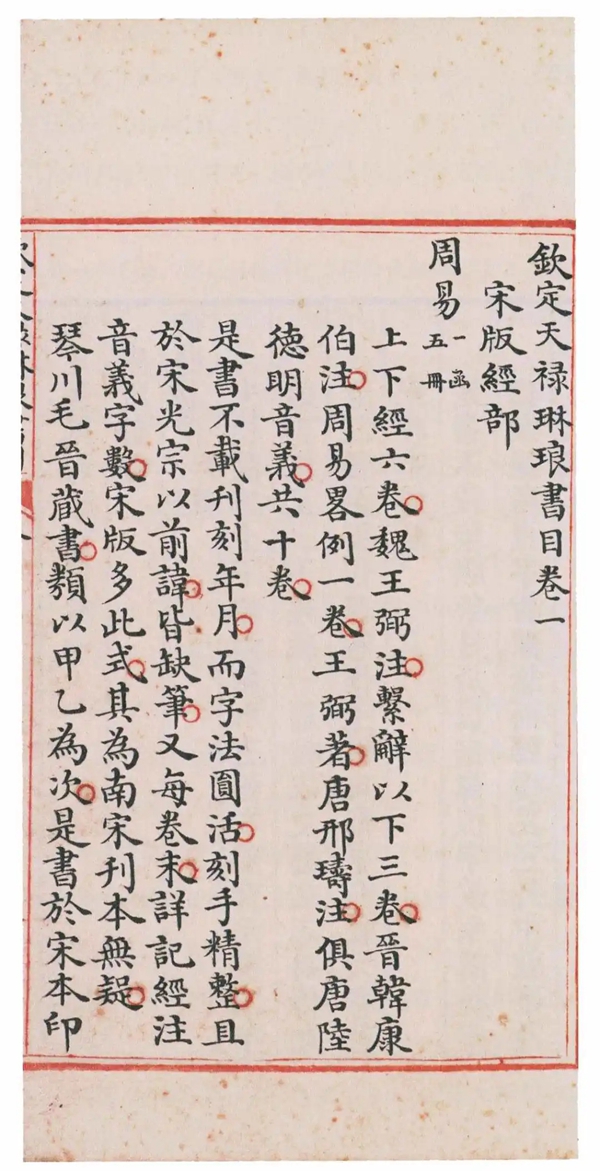 欽定天禄琳琅書目卷一
宋版經部
周易一函五冊
上下經六卷魏王弼注繫辭以下三卷晉韓康
伯注周易畧例一卷王弼著唐邢璹注俱唐陸
德明音義共十卷
是書不載刊刻年月而字法圓活刻手精整且
於宋光宗以前諱皆缺筆又每卷末詳記經注
音義字數宋版多此式其為南宋刊本無疑
琴川毛晉藏書類以甲乙為次是書於宋本印